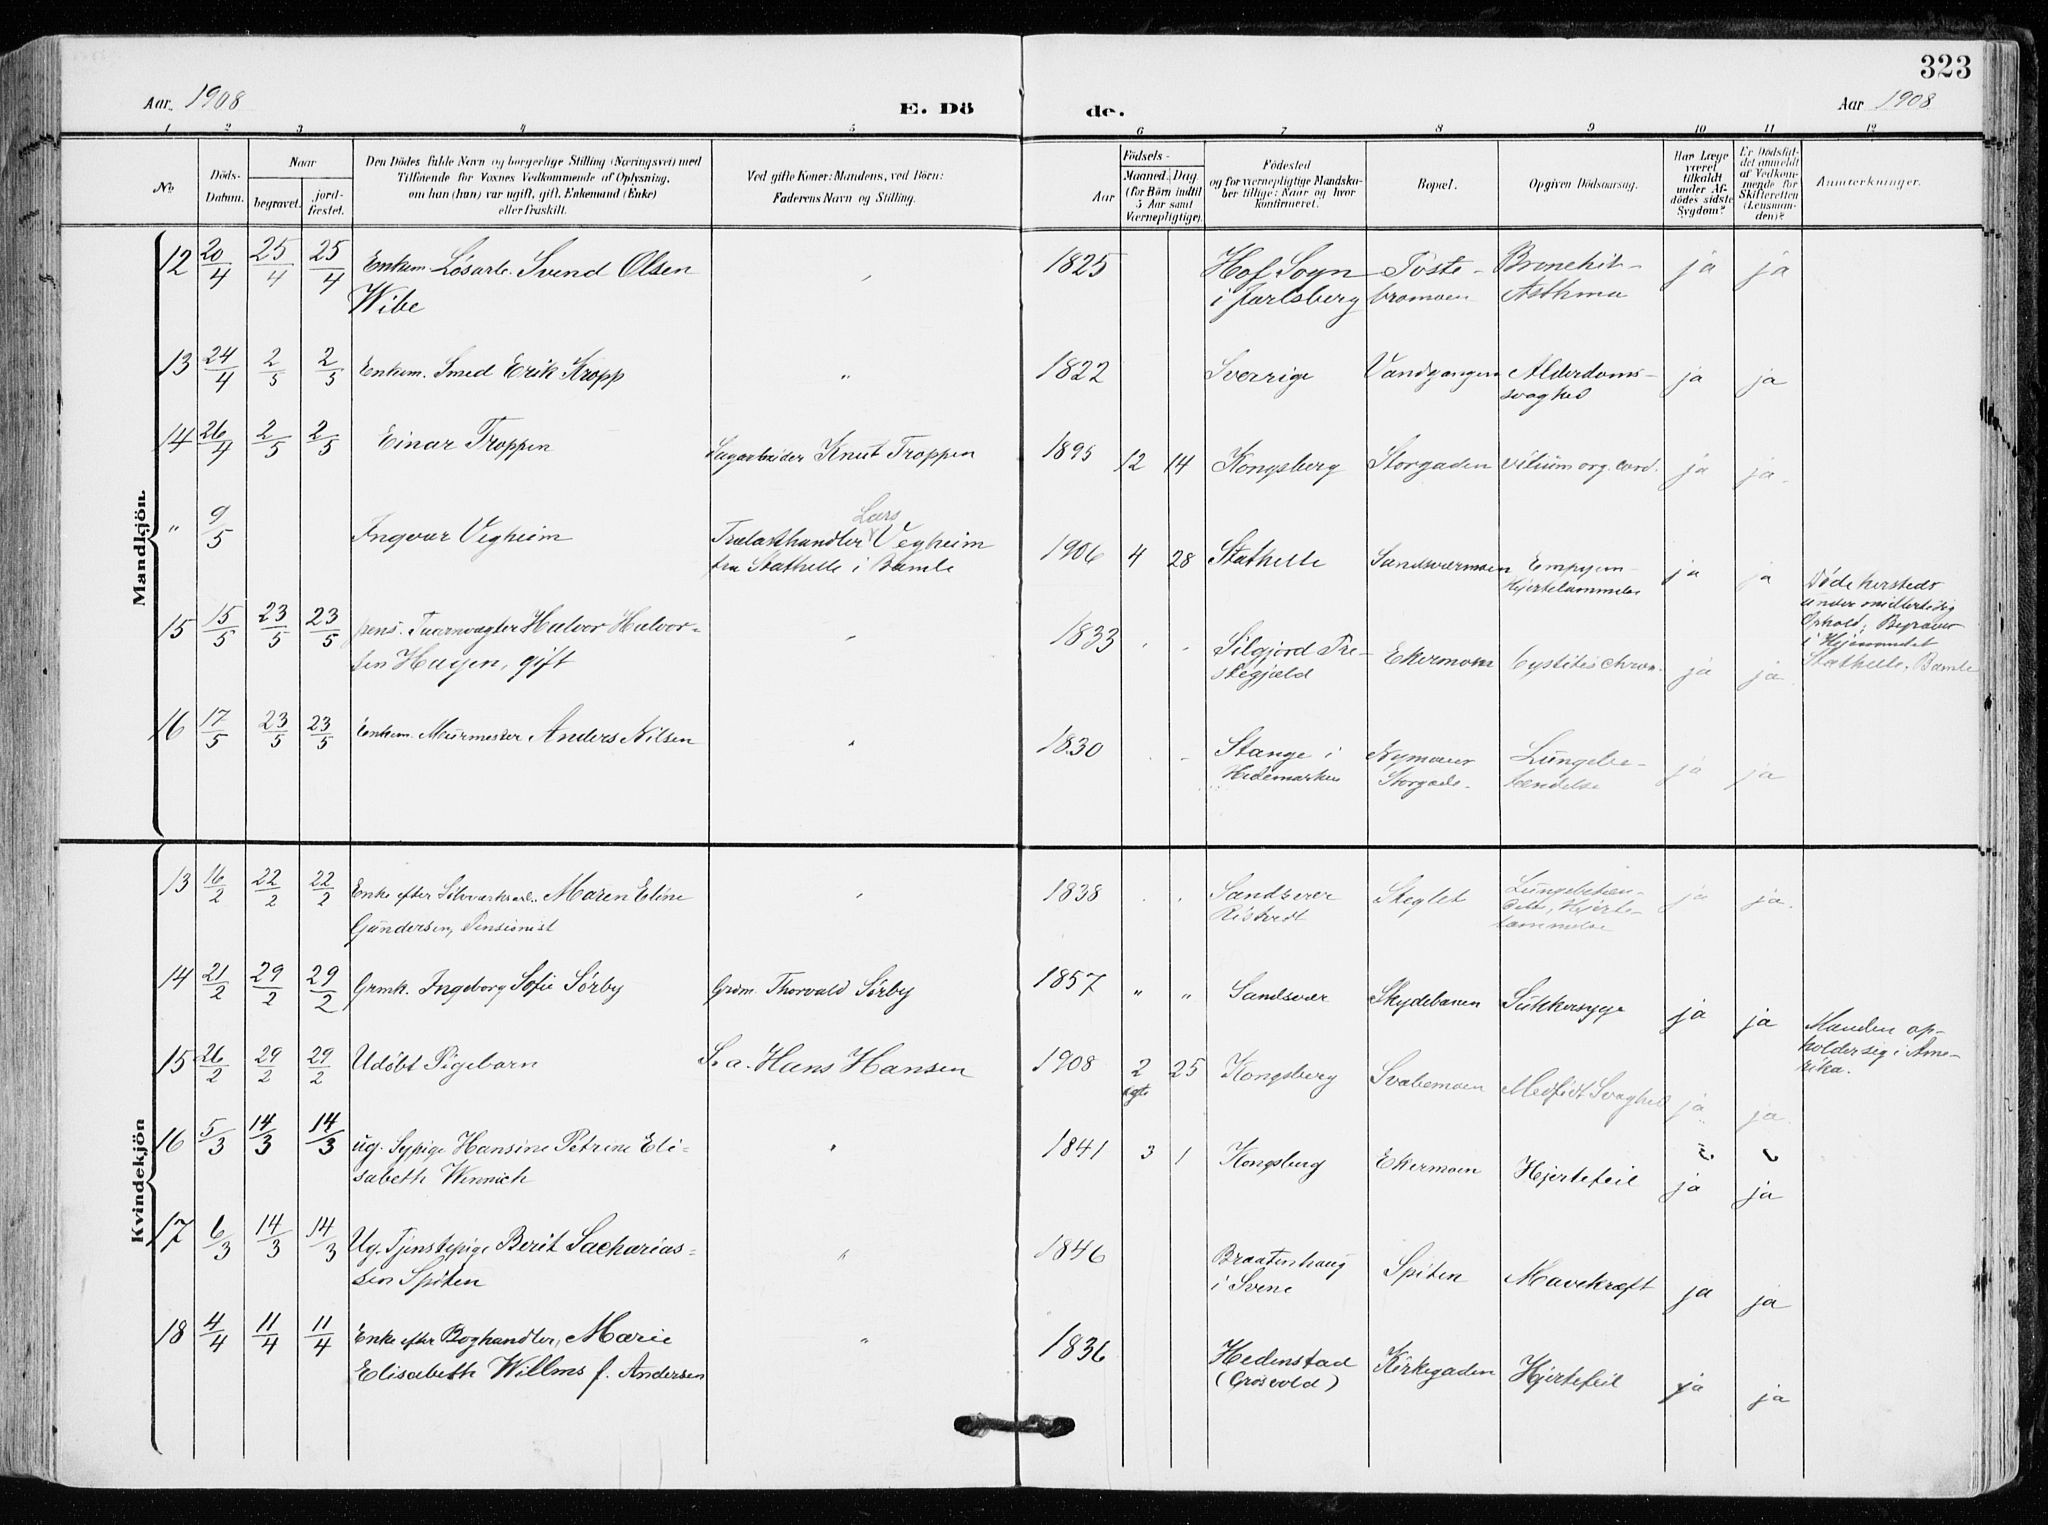 323
Aar 1908
E. Dö
de.
Aar 1908
1 2 3 4 5 6 7 8 9 10 11 12
No
Döds-
Datum.
Naar
begravet.
jord-
fæstet.
Den Dödes fulde Navn og borgerlige Stilling (Næringsvei) med
Tilföiende for Voxnes Vedkommende af Oplysning,
om han (hun) var ugift, gift, Enkemand (Enke)
eller fraskilt.
Ved gifte Koner: Mandens, ved Börn:
Faderens Navn og Stilling.
Födsels-
Aar
Maaned.
Dag.
(for Börn indtil
5 Aar samt
Værnepligtige).
Födested
og for værnepligtige Mandska-
ber tillige: Naar og hvor
konfirmeret.
Bopæl.
Opgiven Dödsaarsag.
Har Læge
været
tilkaldt
under Af-
dödes sidste
Sygdom?
Er Dödsfal-
det anmeldt
af Vedkom-
mende for
Skifteretten
(Lensman-
den)?
Anmærkninger.
Mandkjön.
12 20/4 25/4 25/4 Enkem. Løsarb. Svend Olsen " 1825 Hof Sogn Toste- Bronchit- ja ja
Wibe i Jarlsberg bromoen Asthma
13 24/4 2/5 2/5 Enkem. Smed Erik Kropp " 1822 Sverrige Vandgangen Alderdoms- ja ja
svaghed
14 26/4 2/5 2/5 Einar Troppen Sagarbeider Knut Troppen 1895 12 14 Kongsberg Storgaden vitium org. cord. ja ja
Lars
" 9/5 Ingvar Vegheim Trælasthandler Vegheim 1906 4 28 Stathelle Sandsværmoen Empyem- ja ja
fra Stathelle i Bamle Hjertelammelse
Døde hersteds
under midlertidig
Ophold. Begraves
i Hjemmet
Stathelle, Bamle
15 15/5 23/5 23/5 pens. Taarnvægter Halvor Halvor- " 1833 Silgjord Præ- Ekermoen Cystitis chron. ja ja
sen Hagen, gift stegjæld
16 17/5 23/5 23/5 Enkem. Murmester Anders Nilsen " 1830 Stange i Nymoens Lungebe- ja ja
Hedemarken Storgade. tændelse
Kvindekjön
13 16/2 22/2 22/2 Enke efter Sølvværksarb. Maren Eline " 1838 Sandsvær Steglet Lungebetæn- ja ja.
Gundersen, Pensionist Ristvedt delse, Hjerte-
lammelse
14 21/2 29/2 29/2 Grmk. Ingeborg Sofie Sørby Grbm. Thorvald Sørby 1857 " " Sandsvær Skydebanen Sukkersyge ja ja
Manden op-
holder sig i Ame-
rika.
15 26/2 29/2 29/2 Udøbt Pigebarn S. a. Hans Hansen 1908 2 25 Kongsberg Svabemoen Medfødt Svaghed ja ja
ægte
16 5/3 14/3 14/3 ug. Sypige Hansine Petrine Eli- " 1841 3 1 Kongsberg Ekermoen Hjertefeil ja ja
sabeth Winnich
17 6/3 14/3 14/3 Ug. Tjenstepige Berit Sacharias- " 1846 Braatenhaug Spiten Mavekræft ja ja
sen Spiten i Svene
18 4/4 11/4 11/4 Enke efter Boghandler, Marie " 1836 Hedenstad Kirkegaden Hjertefeil ja ja
Elisabeth Willms f. Andersen (Grøsvold)